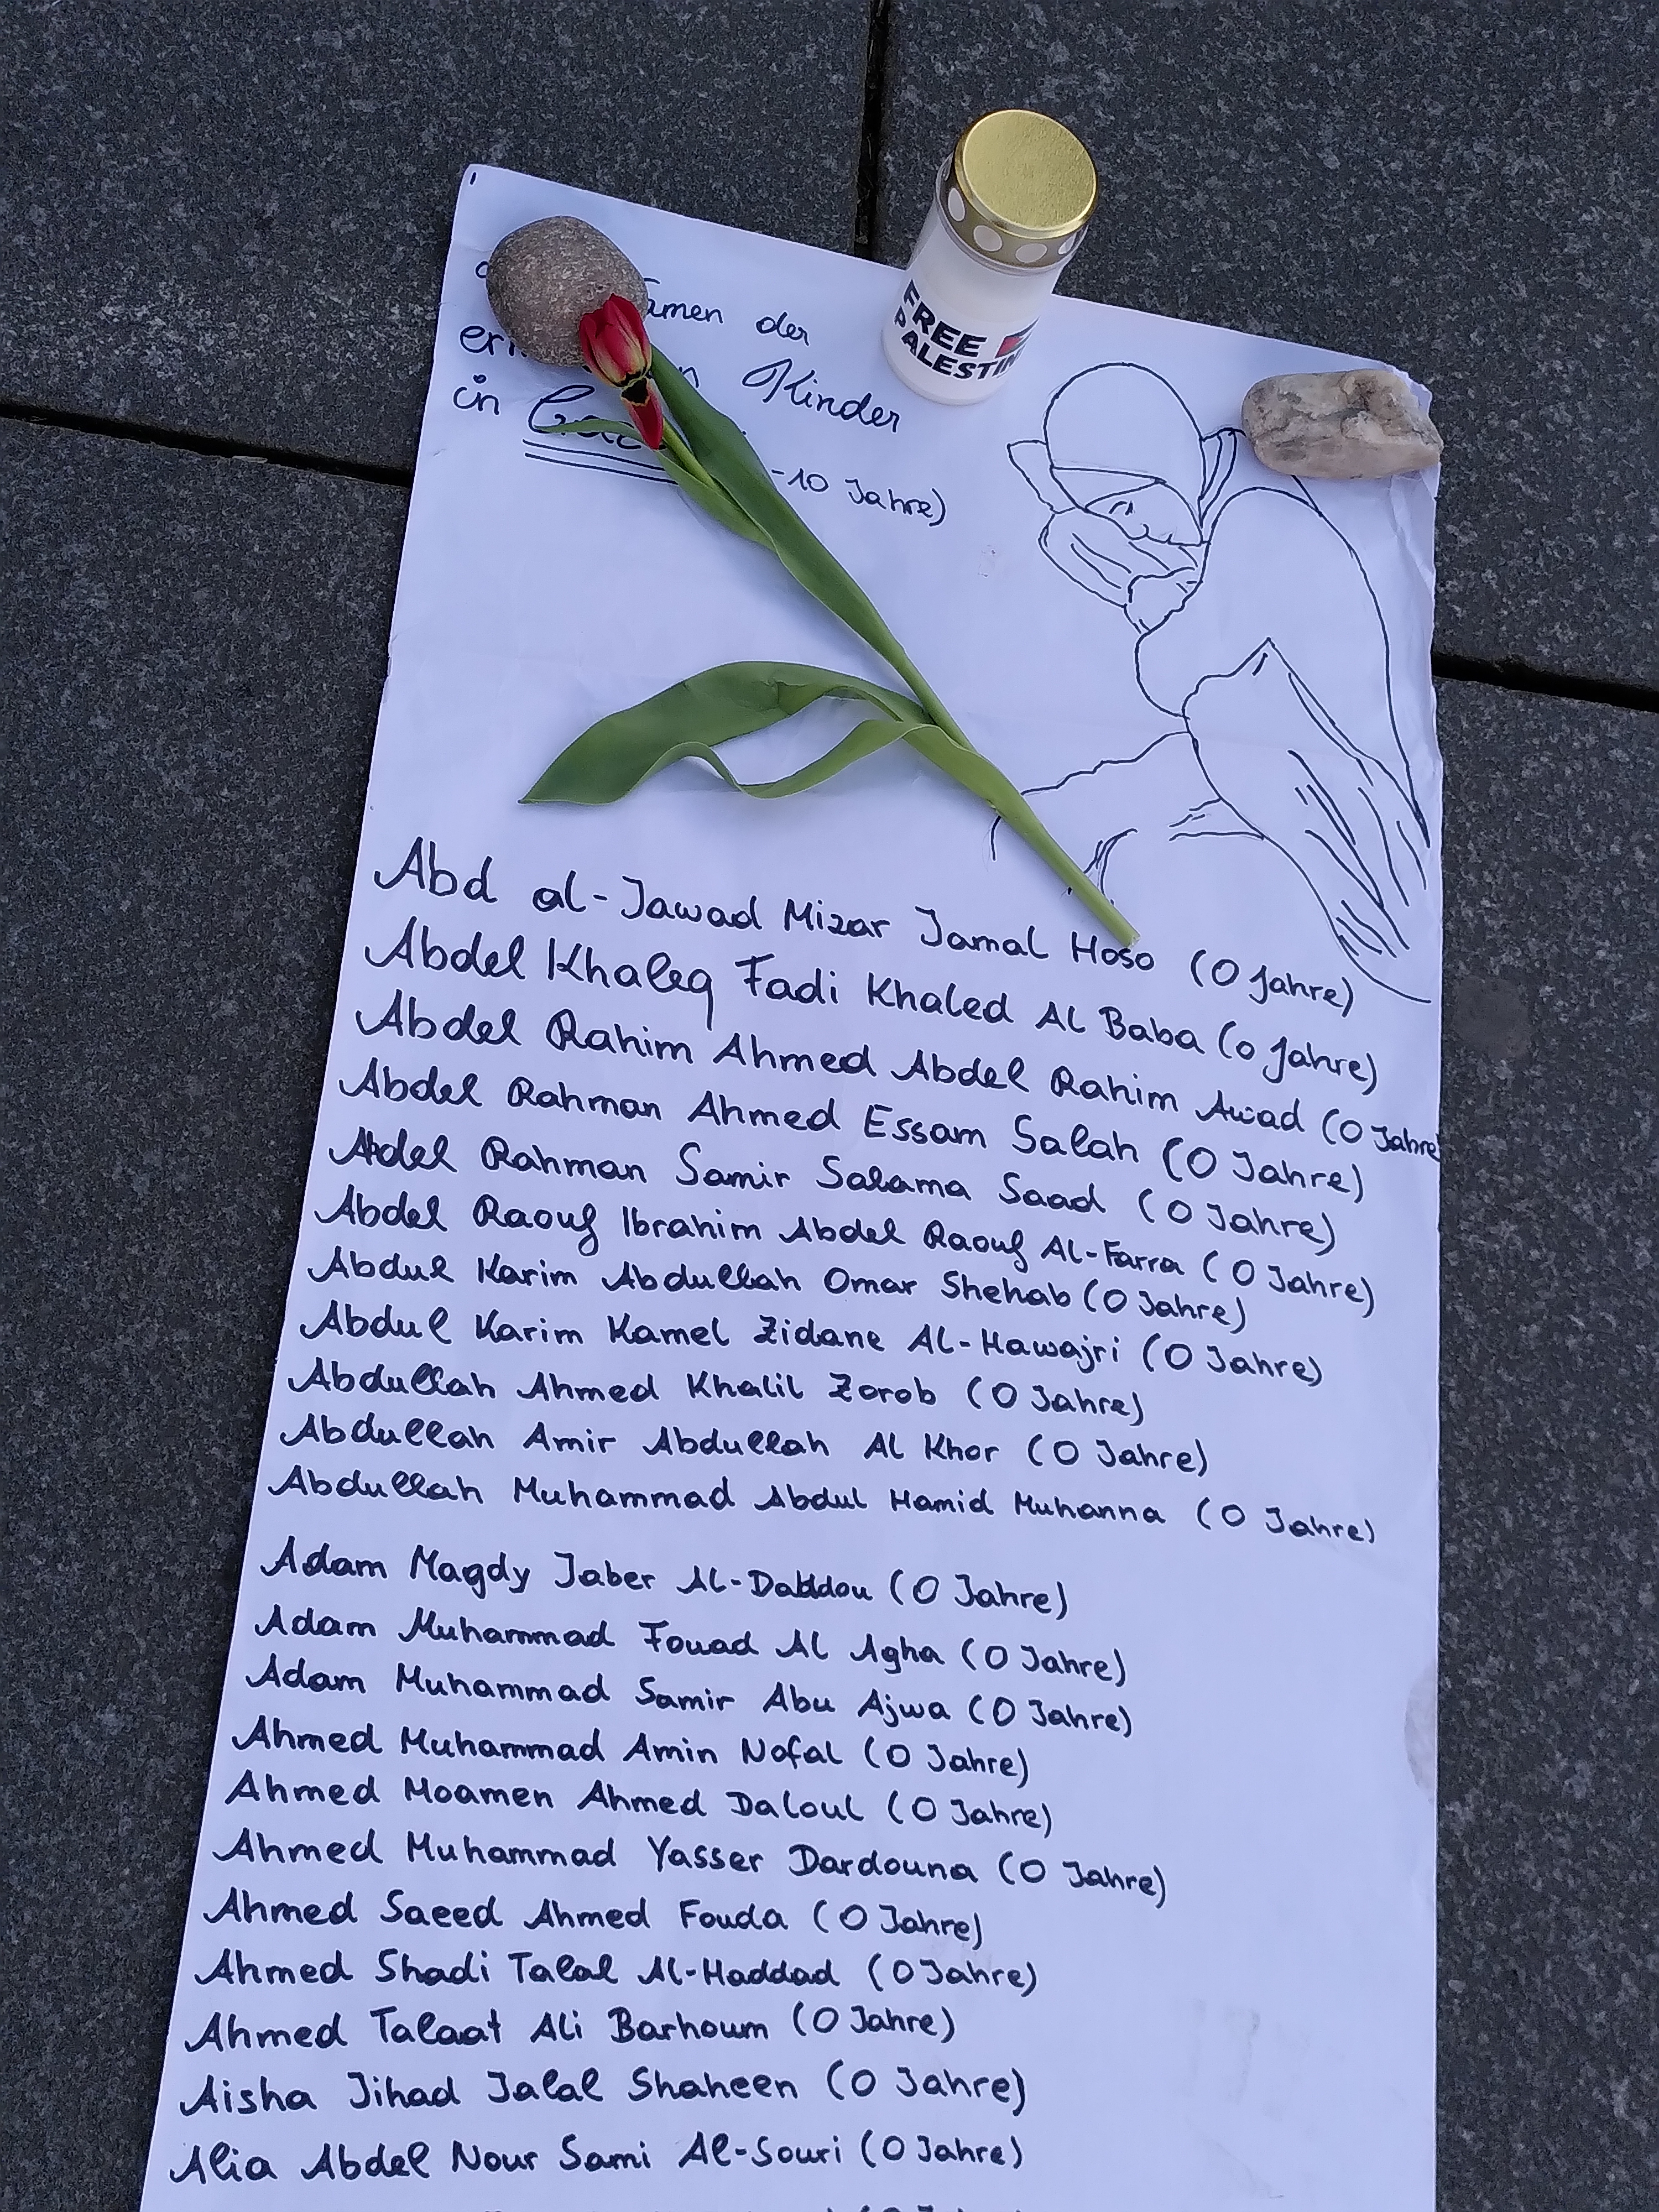 der
Kinder
in
-10 Jahre)
FREE
PALESTIN
Abd al-Jawad Mizar Jamal Hoso (0 Jahre)
Abdel Khaleq Fadi Khaled Al Baba (0 Jahre)
Abdel Rahim Ahmed Abdel Rahim Awad (0 Jahre
Abdel Rahman Ahmed Essam Salah (0 Jahre)
Abdel Rahman Samir Salama Saad (0 Jahre)
Abdel Raouf Ibrahim Abdel Raouf Al-Farra (0 Jahre)
Abdul Karim Abdullah Omar Shehab (0 Jahre)
Abdul Karim Kamel Zidane Al-Hawajri (0 Jahre)
Abdullah Ahmed Khalil Zorob (0 Jahre)
Abdullah Amir Abdullah Al Khor (0 Jahre)
Abdullah Muhammad Abdul Hamid Muhanna (0 Jahre)
Adam Magdy Jaber Al-Daddou (0 Jahre)
Adam Muhammad Fouad Al Agha (0 Jahre)
Adam Muhammad Samir Abu Ajwa (0 Jahre)
Ahmed Muhammad Amin Nofal (0 Jahre)
Ahmed Moamen Ahmed Daloul (0 Jahre)
Ahmed Muhammad Yasser Dardouna (0 Jahre)
Ahmed Saeed Ahmed Fouda (0 Jahre)
Ahmed Shadi Talal Al-Haddad (0 Jahre)
Ahmed Talaat Ali Barhoum (0 Jahre)
Aisha Jihad Jalal Shaheen (0 Jahre)
Alia Abdel Nour Sami Al-Souri (0 Jahre)